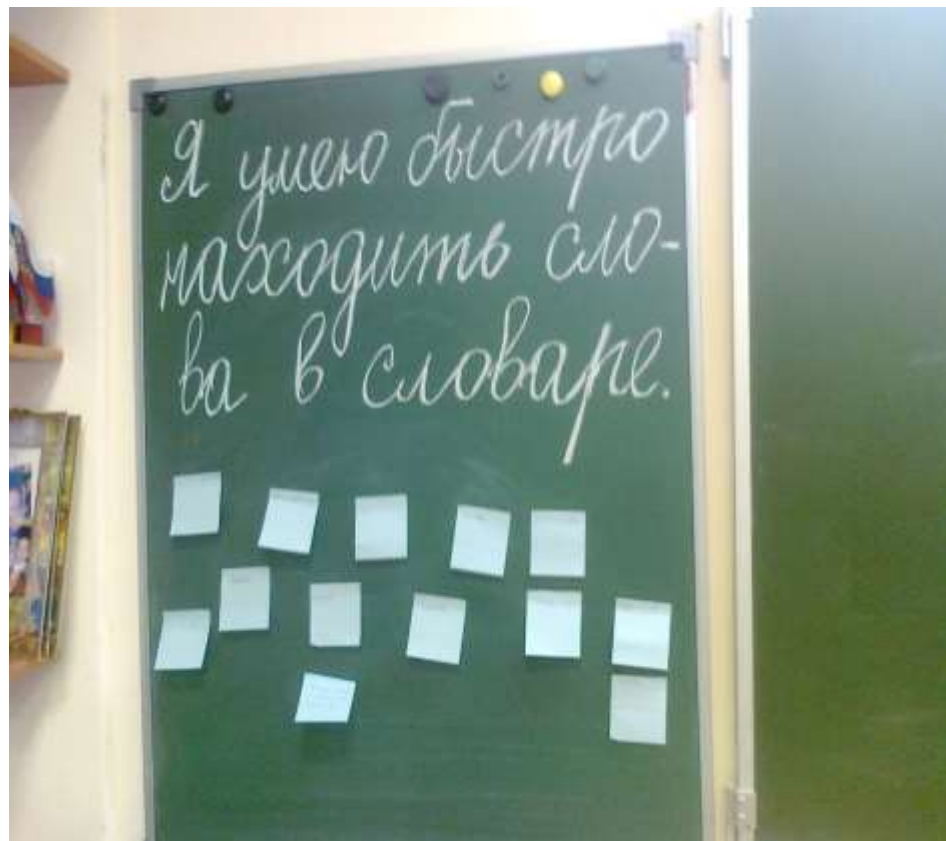 Я умею быстро
находить сло-
ва в словаре.